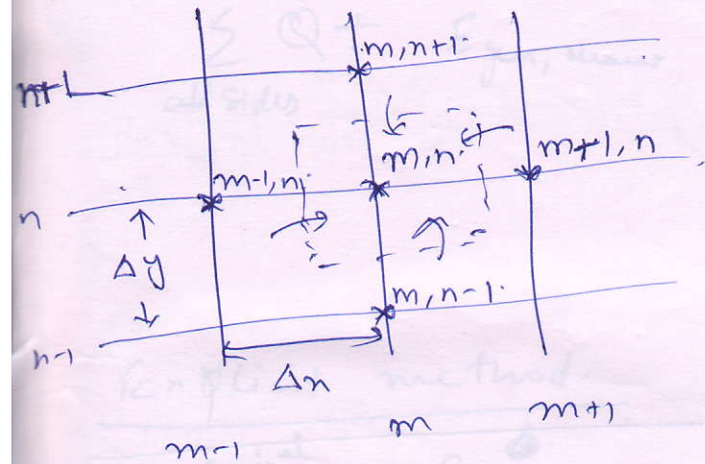 m, n+1.
n+1
m-1, n.
m, n.
m+1, n
n
Δy
m, n-1.
n-1
Δn
m-1
m
m+1